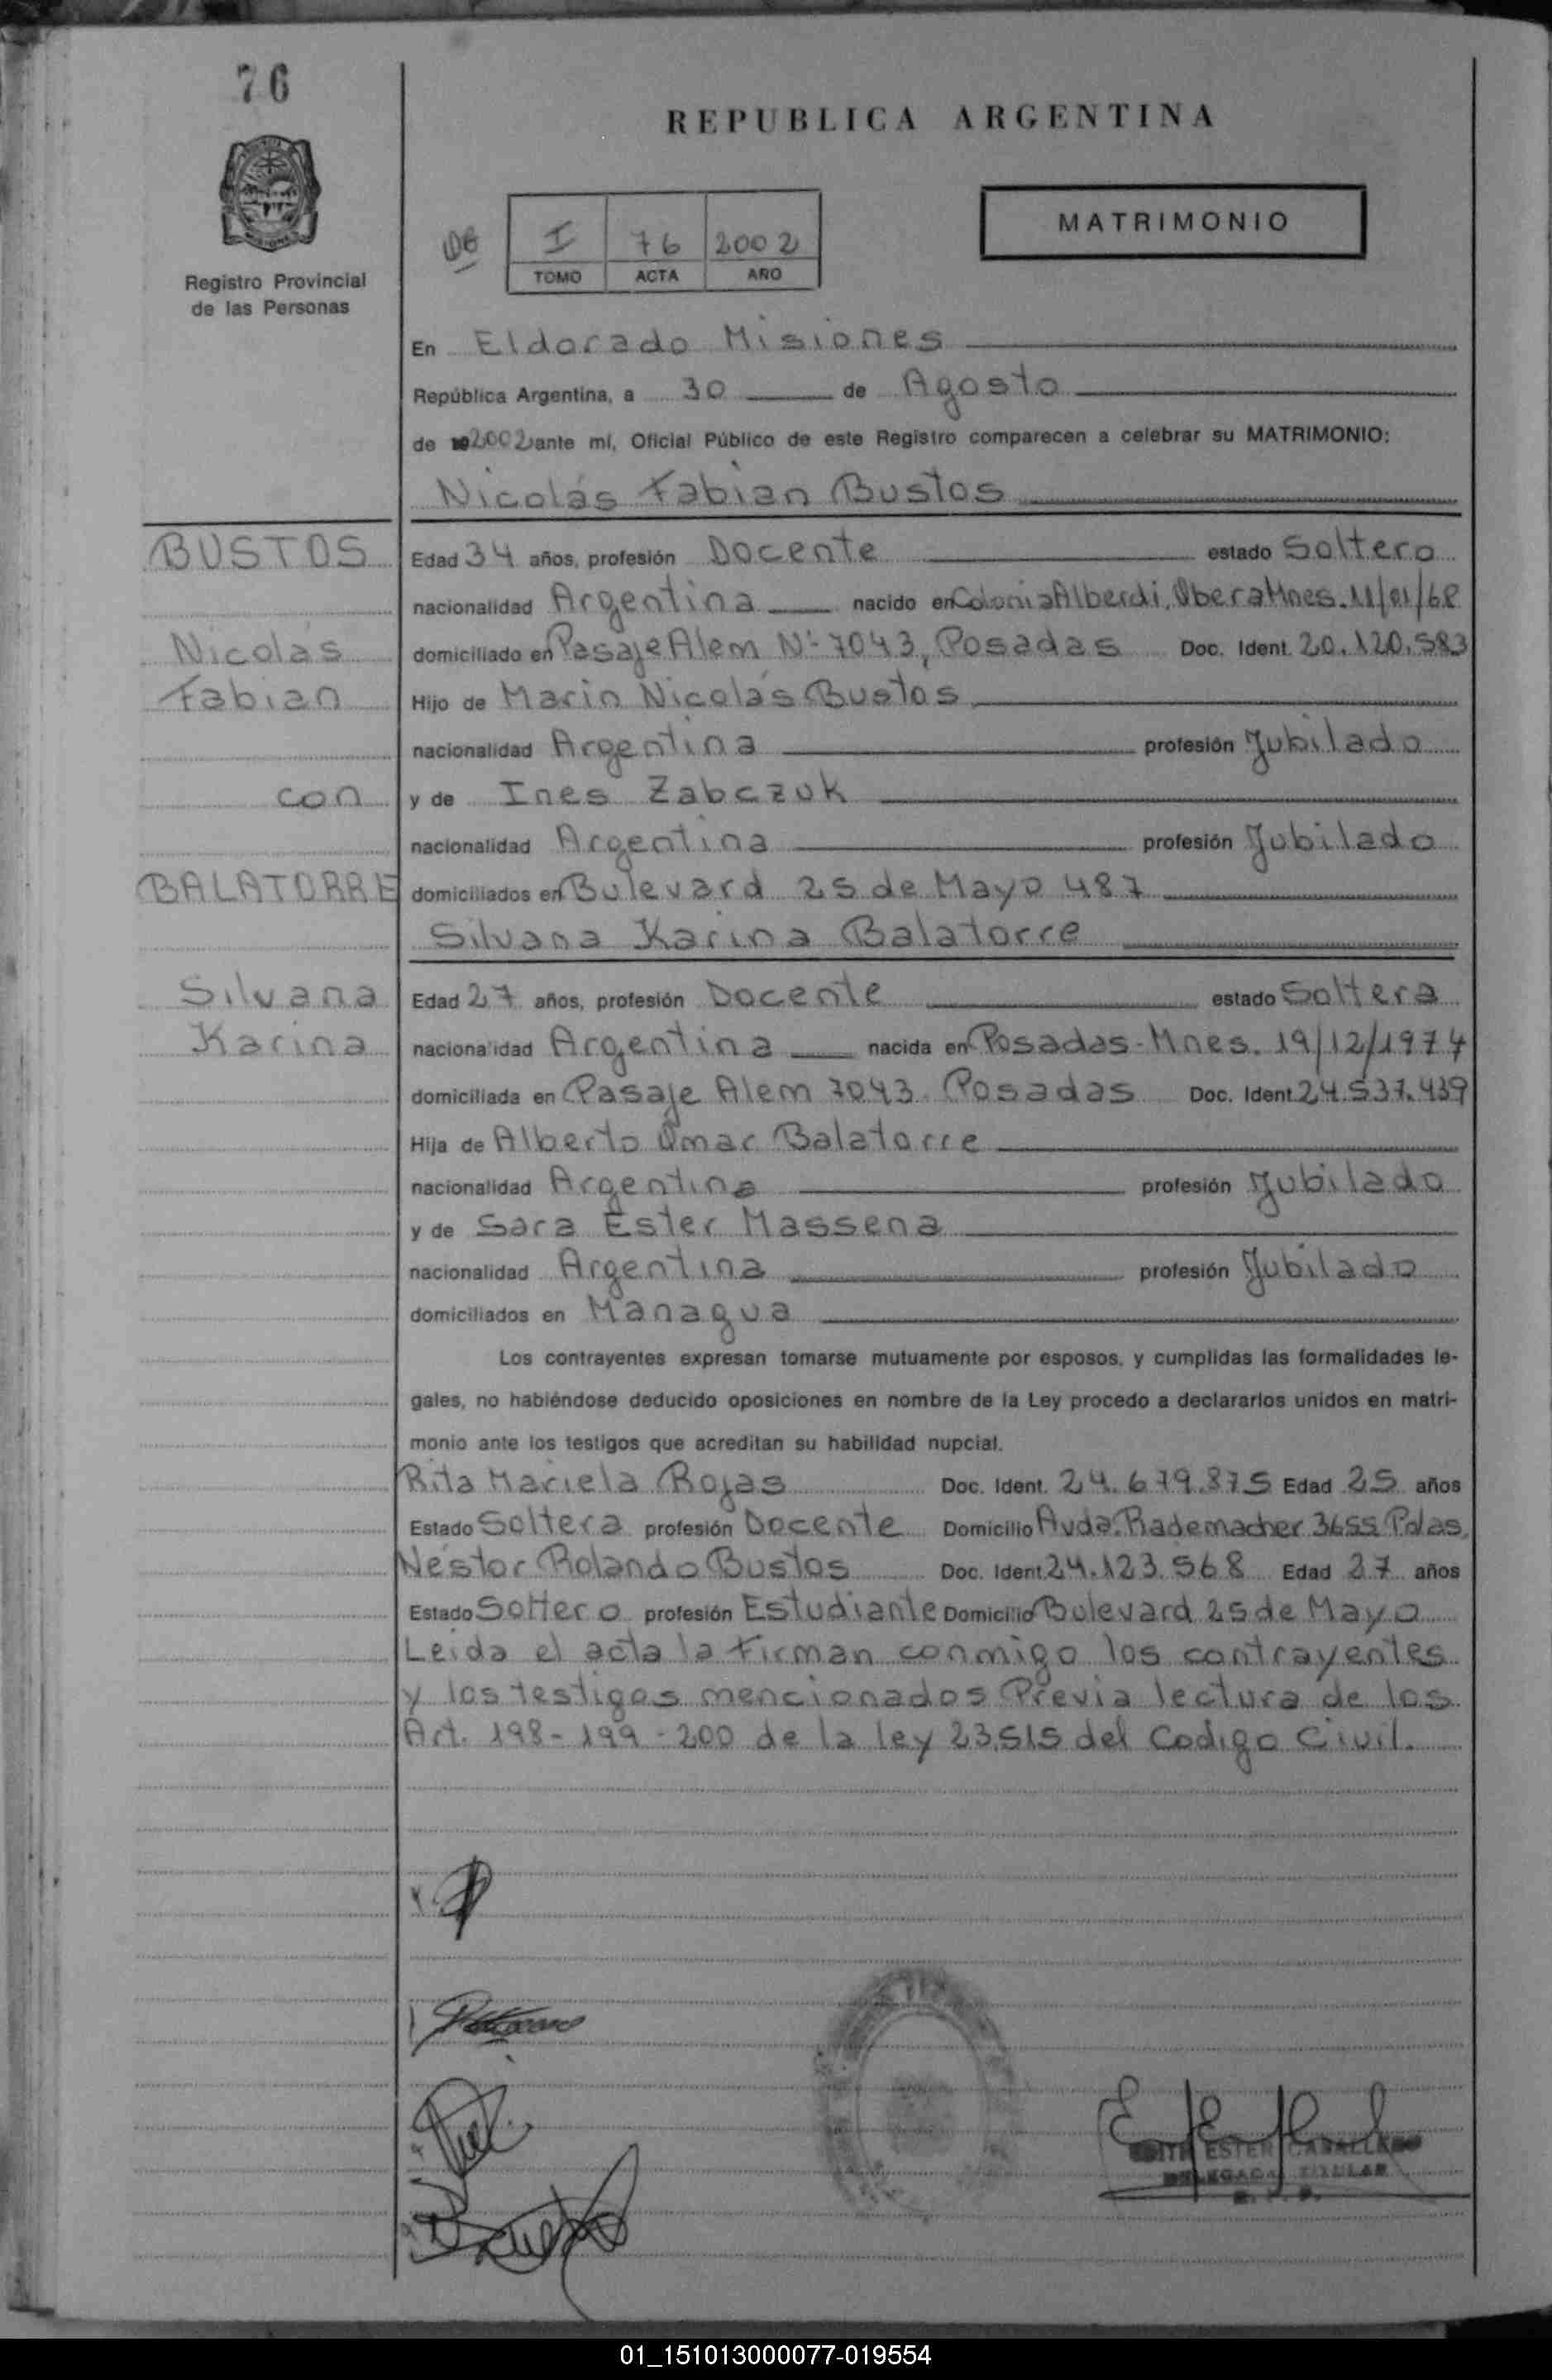 76
REPUBLICA ARGENTINA
I 76 2002
TOMO ACTA AÑO
MATRIMONIO
Registro Provincial
de las Personas
En Eldorado Misiones
República Argentina, a 30 de Agosto
de 2002 ante mí, Oficial Público de este Registro comparecen a celebrar su MATRIMONIO:
Nicolás Fabian Bustos
BUSTOS
Nicolás
Fabian
con
BALATORRE
Silvana
Karina
Edad 34 años, profesión Docente estado Soltero
nacionalidad Argentina nacido en Colonia Alberdi, Obera Mnes. 11/01/68
domiciliado en Pasaje Alem Nº 7043, Posadas Doc. Ident. 20.120.583
Hijo de Marin Nicolás Bustos
nacionalidad Argentina profesión Jubilado
y de Ines Zabczuk
nacionalidad Argentina profesión Jubilado
domiciliados en Bulevard 25 de Mayo 487
Silvana Karina Balatorre
Edad 27 años, profesión Docente estado Soltera
nacionalidad Argentina nacida en Posadas - Mnes. 19/12/1974
domiciliada en Pasaje Alem 7043 Posadas Doc. Ident. 24.537.439
Hija de Alberto Omar Balatorre
nacionalidad Argentina profesión Jubilado
y de Sara Ester Massena
nacionalidad Argentina profesión Jubilado
domiciliados en Managua
Los contrayentes expresan tomarse mutuamente por esposos, y cumplidas las formalidades le-
gales, no habiéndose deducido oposiciones en nombre de la Ley procedo a declararlos unidos en matri-
monio ante los testigos que acreditan su habilidad nupcial.
Rita Mariela Rojas Doc. Ident. 24.679.875 Edad 25 años
Estado Soltera profesión Docente Domicilio Avda. Rademacher 3655 Pdas.
Néstor Rolando Bustos Doc. Ident. 24.123.568 Edad 27 años
Estado Soltero profesión Estudiante Domicilio Bulevard 25 de Mayo
Leida el acta la firman conmigo los contrayentes
y los testigos mencionados Previa lectura de los
Art. 198 - 199 - 200 de la ley 23.515 del Codigo Civil.
EDITH ESTER CABALLERO
DELEGADA TITULAR
01_151013000077-019554